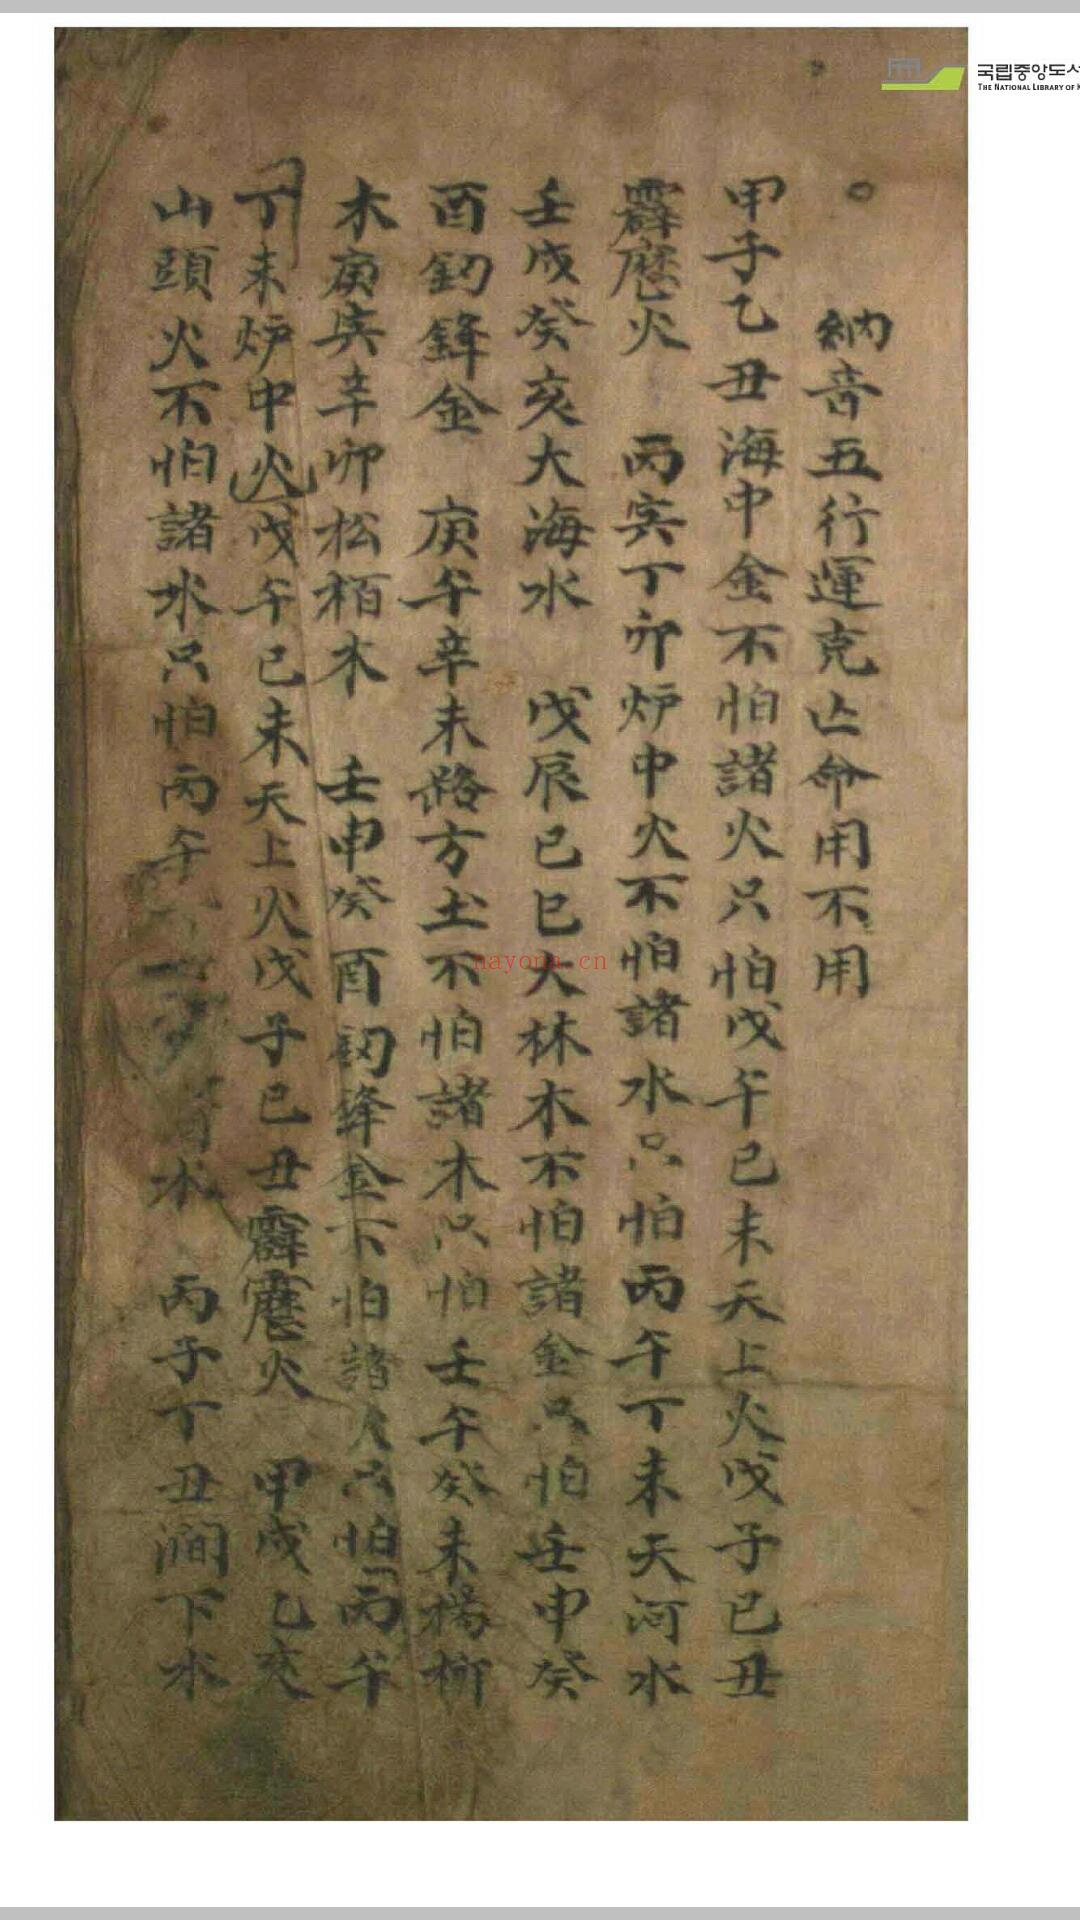 국립중앙도서
THE NATIONAL LIBRARY OF K
○
納音五行運克亡命用不用
甲子乙丑海中金不怕諸火只怕戊午己未天上火戊子己丑
霹靂火 丙寅丁卯炉中火不怕諸水只怕丙午丁未天河水
壬戌癸亥大海水 戊辰己巳大林木不怕諸金只怕壬申癸
酉釰鋒金 庚午辛未路方土不怕諸木只怕壬午癸未楊柳
木庚寅辛卯松栢木 壬申癸酉釰鋒金不怕諸火只怕丙午
丁未炉中火戊午己未天上火戊子己丑霹靂火 甲戌乙亥
山頭火不怕諸水只怕丙午 水 丙子丁丑澗下水
nayona.cn